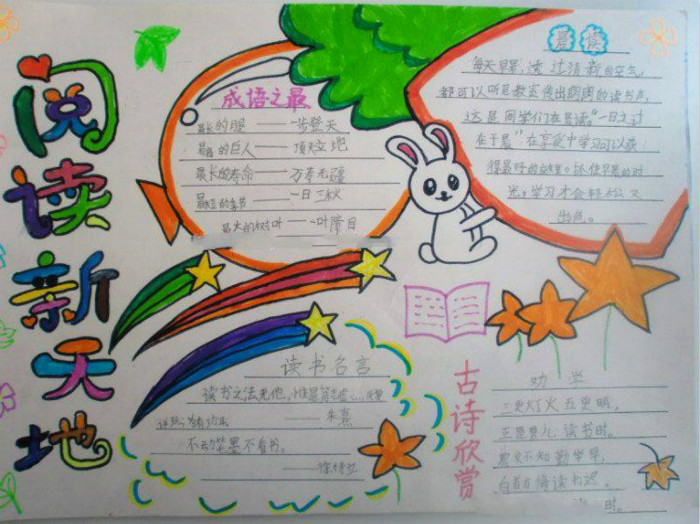 阅读新天地
成语之最
最长的腿——一步登天
最高的巨人——顶天立地
最长的寿命——万寿无疆
最短的季节——一日三秋
最大的树叶——一叶障目
晨读
每天早晨,透过清新的空气,
都可以听见教室传出朗朗的读书声,
这是同学们在晨读“一日之计
在于晨”在享受中学习可以获
得最好的效果。
学习才会轻松又
出色。
读书名言
读书之法无他,惟是笃志虚心,反复
详玩,为有功耳 朱熹
不动笔墨不看书。
——徐特立
古诗欣赏
劝学
三更灯火五更鸡,
正是男儿读书时。
黑发不知勤学早,
白首方悔读书迟。
时。